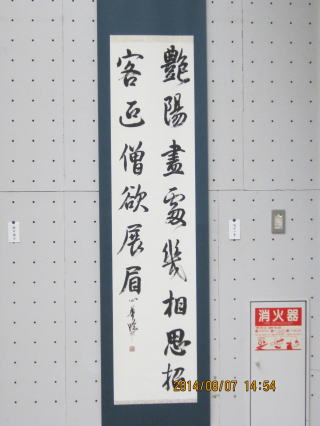 艷陽盡處幾相思招
客迎僧欲展眉
消火器
2014/08/07 14:54